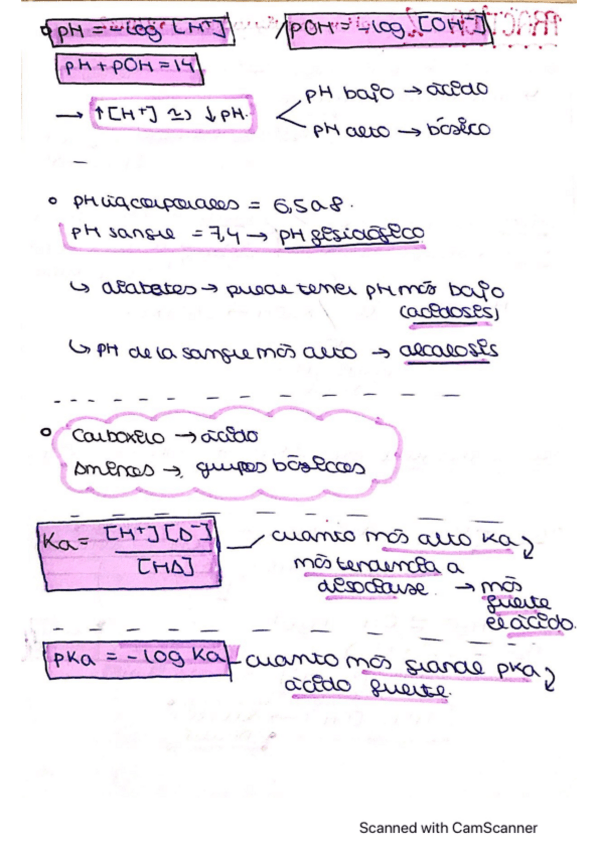 pH = -log [H+] pOH = -log [OH-]
pH + pOH = 14
→ ↑[H+] ≃> ↓pH. pH bajo → ácido
pH alto → básico
pH líq corporales = 6,5 a 8.
pH sangre = 7,4 → pH fisiológico
↳ diabetes → puede tener pH más bajo
(acidosis)
↳ pH de la sangre más alto → alcalosis
Carboxilo → ácido
Aminas → grupos básicos
Ka = [H+][A-] / [HA]
cuanto más alto Ka
más tendencia a
disociarse → más
fuerte
el ácido.
pKa = -log Ka - cuanto más grande pka
ácido fuerte.
Scanned with CamScanner